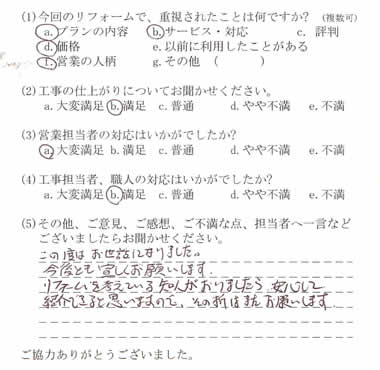 (1)今回のリフォームで、重視されたことは何ですか? (複数可)
a.プランの内容 b.サービス・対応 c. 評判
d.価格 e.以前に利用したことがある
f.営業の人柄 g.その他 ( )
(2)工事の仕上がりについてお聞かせください。
a.大変満足 b.満足 c.普通 d.やや不満 e.不満
(3)営業担当者の対応はいかがでしたか?
a.大変満足 b.満足 c.普通 d.やや不満 e.不満
(4)工事担当者、職人の対応はいかがでしたか?
a.大変満足 b.満足 c.普通 d.やや不満 e.不満
(5)その他、ご意見、ご感想、ご不満な点、担当者へ一言など
ございましたらお聞かせください。
この度はお世話になりました。
今後とも宜しくお願いします。
リフォームを考えている知人がおりましたら安心して
紹介できると思いますので、その折はまたお願いします。
ご協力ありがとうございました。